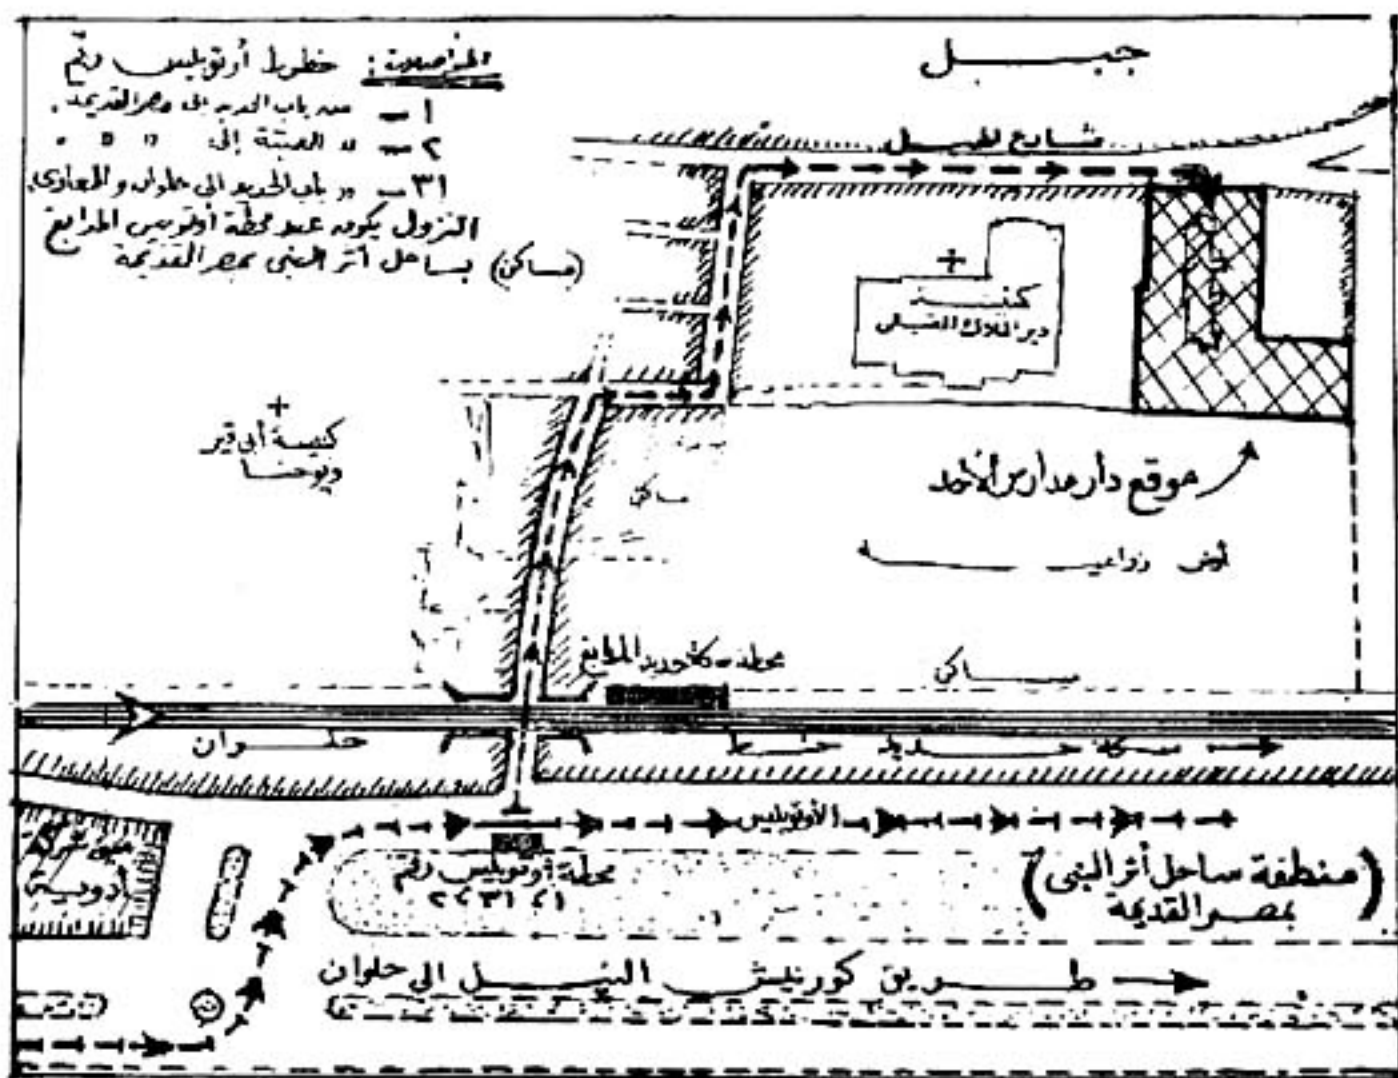 المواصلات: خطوط أوتوبيس رقم
١ - من باب الحديد إلى مصر القديمة.
٢ - " العتبة إلى " " .
٣١ - " باب الحديد إلى حلوان والمعادى.
النزول يكون عند محطة أوتوبيس المدابغ
(مساكن) بساحل أثر النبى بمصر القديمة
جبل
شارع الجبل
كنيسة
دير الملاك القبلى
كنيسة أبى قير
ويوحنا
مساكن
موقع دار مدارس الأحد
أرض زراعية
محطة سكة حديد المدابغ
مساكن
سكة حديد خط
حلوان
الأوتوبيس
أدوية
محطة أوتوبيس رقم
١، ٣١، ٢
(منطقة ساحل أثر النبى
بمصر القديمة)
طريق كورنيش النيل الى حلوان